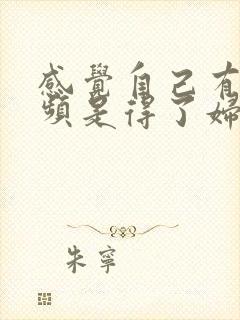 感覺自己有
頻是得了婦
朱寧